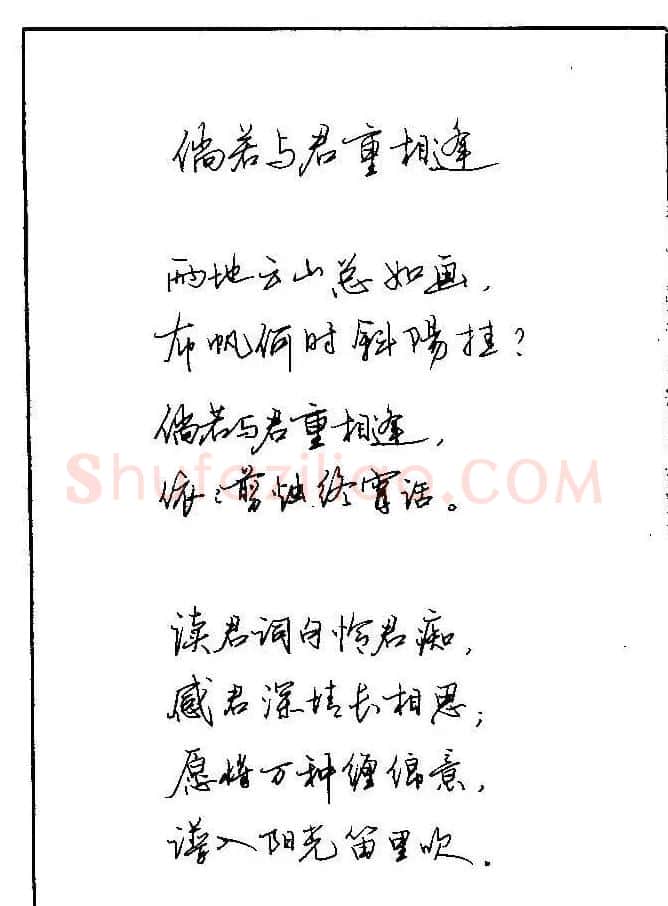 倘若与君重相逢
两地云山总如画，
布帆何时斜陽挂？
倘若与君重相逢，
依:剪烛终宵话。
Shufaziliao.com
读君词句怜君痴，
感君深情长相思；
愿将万种缠绵意，
谱入阳光笛里吹.